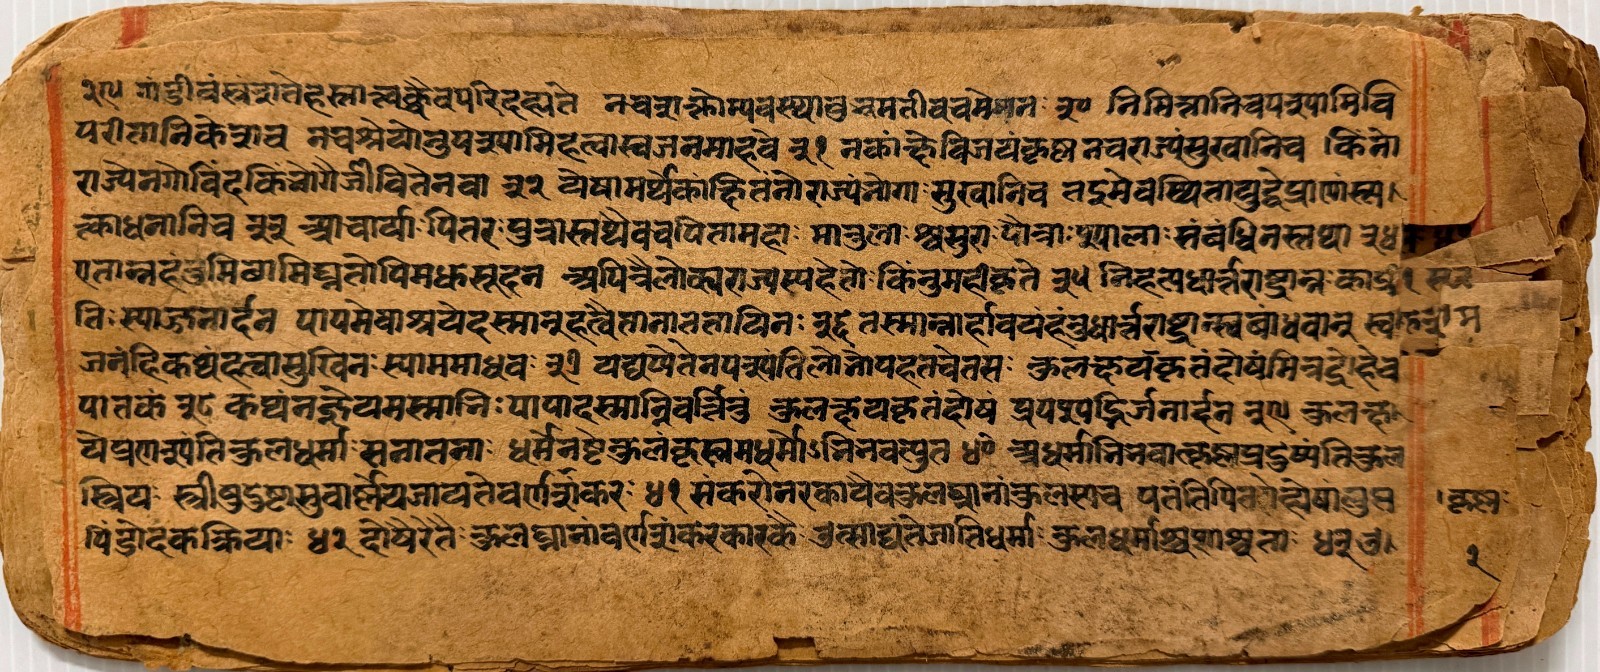 २९ गांडीवंस्त्रंशतेहस्तात्त्वक्चैवपरिदह्यते नचशक्नोम्यवस्थातुंभ्रमतीवचमेमनः ३० निमित्तानिचपश्यामिवि
परीतानिकेशव नचश्रेयोनुपश्यामिहत्वास्वजनमाहवे ३१ नकांक्षेविजयंकृष्ण नचराज्यंसुखानिच किंनो
राज्येनगोविंदकिंभोगैर्जीवितेनवा ३२ येषामर्थेकांक्षितंनोराज्यंभोगा सुखानिच तइमेवस्थितायुद्धेप्राणांस्त्य।
त्काधनानिच ३३ आचार्याः पितरः पुत्रास्तथैवचपितामहाः मातुलाः श्वसुराः पौत्राः श्यालाः संबंधिनस्तथा ३४
एतान्नहंतुमिछामिघ्नतोपिमधुसूदन अपित्रैलोक्यराज्यस्यहेतोः किंनुमहीकृते ३५ निहत्यधार्त्तराष्ट्रान्नः काप्री
तिः स्याज्जनार्दन पापमेवाश्रयेदस्मान्हत्वैतानाततायिनः ३६ तस्मान्नार्हावयंहंतुंधार्त्तराष्ट्रान्स्वबांधवान् स्व
जनंहिकथंहत्वासुखिनः स्याममाधव ३७ यद्यप्येतेनपश्यंतिलोभोपहतचेतसः कुलक्षयकृतंदोषंमित्रद्रोहेच
पातकं ३८ कथंनज्ञेयमस्माभिः पापादस्मान्निवर्त्तितुं कुलक्षयकृतंदोषं प्रपश्यद्भिर्जनार्दन ३९ कुलक्ष।
येप्रणश्यंतिकुलधर्माः सनातनाः धर्मेनष्टेकुलंकृत्स्नमधर्मोऽभिभवत्युत ४० अधर्माभिभवात्कृष्णप्रदुष्यंतिकुल
स्त्रियः स्त्रीषुदुष्टासुवार्ष्णेयजायतेवर्णशंकरः ४१ संकरोनरकायैवकुलघ्नानांकुलस्यच पतंतिपितरोह्येषांलुप्त
पिंडोदकक्रियाः ४२ दोषैरेतैः कुलघ्नानांवर्णशंकरकारकैः उत्साद्यंतेजातिधर्माः कुलधर्माश्चशाश्वताः ४३ उ।
।कृष्ण
२